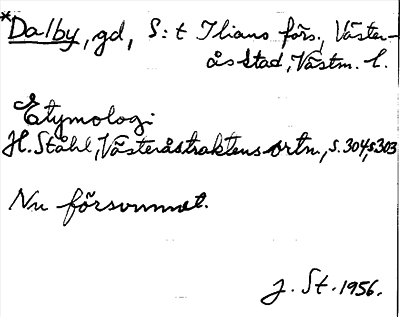 *Dalby, gd, S:t Ilians förs., Väster-
ås stad, Västm. l.
Etymologi
H. Ståhl, Västeråstraktens ortn., s. 304, s 303
Nu försvunnet.
J. St. 1956.